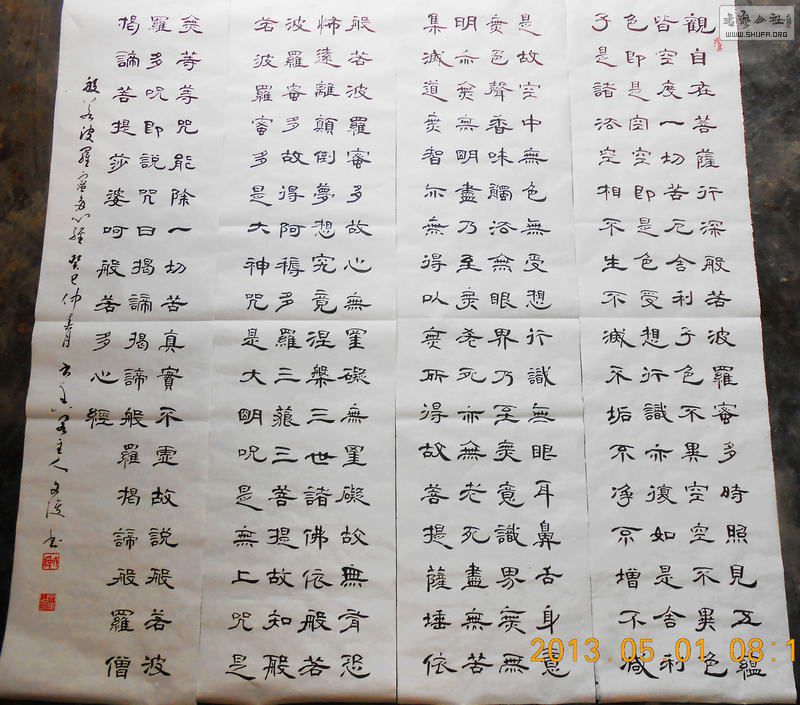 觀自在菩薩行深般若波羅蜜多時照見五蘊
皆空度一切苦厄舍利子色不異空空不異色
色即是空空即是色受想行識亦復如是舍利
子是諸法空相不生不滅不垢不淨不增不減
是故空中無色無受想行識無眼耳鼻舌身意
無色聲香味觸法無眼界乃至無意識界無無
明亦無無明盡乃至無老死亦無老死盡無苦
集滅道無智亦無得以無所得故菩提薩埵依
般若波羅蜜多故心無罣礙無罣礙故無有恐
怖遠離顛倒夢想究竟涅槃三世諸佛依般若
波羅蜜多故得阿耨多羅三藐三菩提故知般
若波羅蜜多是大神咒是大明咒是無上咒是
無等等咒能除一切苦真實不虛故說般若波
羅多咒即說咒曰揭諦揭諦般羅揭諦般羅僧
揭諦菩提莎婆呵般若多心經
般若波羅蜜多心經癸巳仲春月主人文俊书
WWW.SHUFA.ORG
2013.05.01 08:1